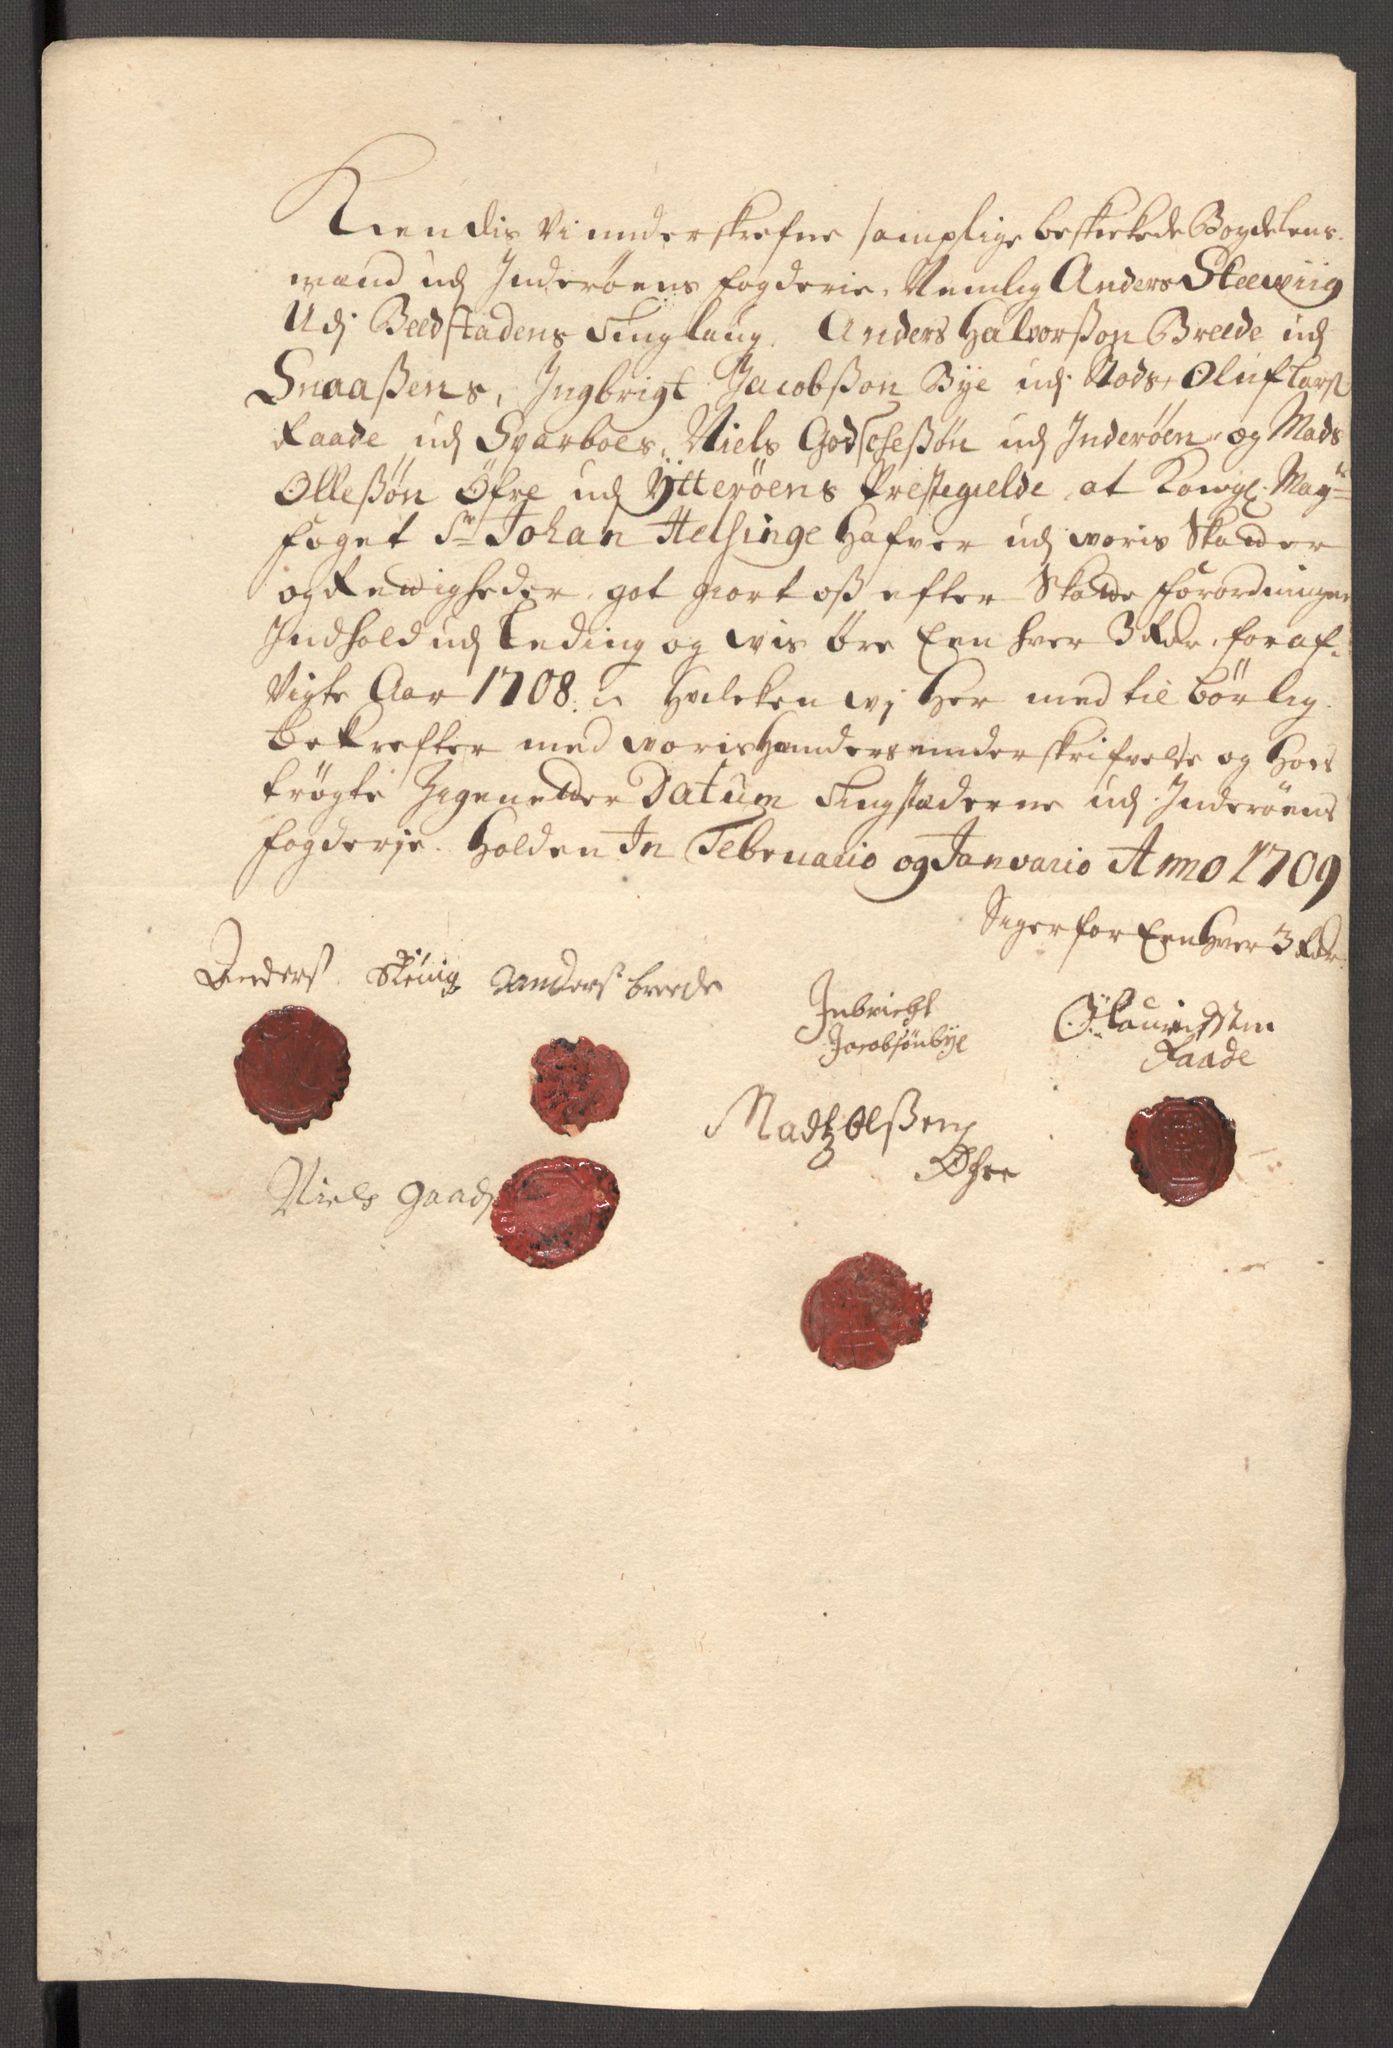 Kiendis Vi underskrefne samptlige beskickede Bøydelens-
mænd udj Inderøens fogderie, Nemlig Anders Steewiig
Udj Beedstadens Tinglaug. Anders Halvorßon Breede udj
Snaaßens, Ingbrigt Jacobßon Bye udj Stods, Oluf Larß
Raade udj Sparboes, Niels ud Inderøen og Mads
Olleßøn Öfre udj Ÿtterøens Prestegielde, at Kongl: May:ts
foget Sr Johan Helsinge Hafver udj woris Skatter
og Rettigheder, got giort oß efter Skatte forordningens
Indhold udj Leding og wis øre Een hver 3 Rdr. for af-
Vigte Aar 1708. Hvilcken wj Her med til børlig
bekrefter med woris Hænders underskrifvelse og Hoes
trögte Zigenetter Datum Tingstæderne udj Inderøens
fogderje. Holden In Februario og Januario Anno 1709
Siger for Een Hver 3 Rdr.
Anders Steuig Anders breede
Inbricht
Jacobsönbÿe
Raade
Madtz Olßen
Öfre
Niels gaads